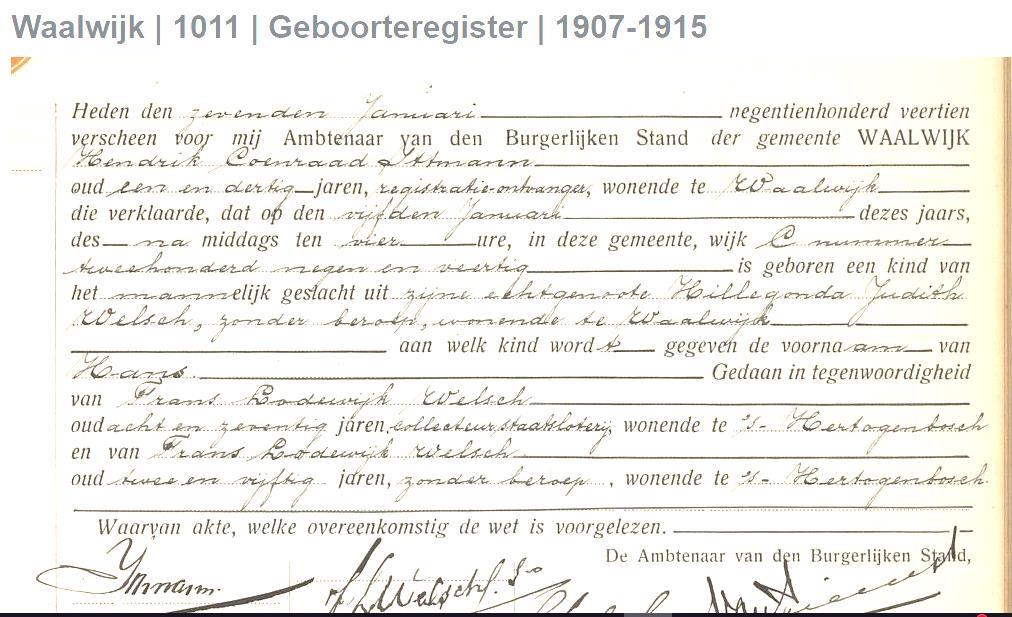 Waalwijk | 1011 | Geboorteregister | 1907-1915
Heden den zevenden Januari negentienhonderd veertien
verscheen voor mij Ambtenaar van den Burgerlijken Stand der gemeente WAALWIJK
Hendrik Coenraad Ittmann
oud een en dertig jaren, registratie-ontvanger, wonende te Waalwijk
die verklaarde, dat op den vijfden Januari dezes jaars,
des na middags ten vier ure, in deze gemeente, wijk C nummer
tweehonderd negen en veertig is geboren een kind van
het mannelijk geslacht uit zijne echtgenoote Hillegonda Judith
Welsch, zonder beroep, wonende te Waalwijk
aan welk kind wordt gegeven de voornaam van
Hans. Gedaan in tegenwoordigheid
van Frans Lodewijk Welsch
oud acht en zeventig jaren, collecteur staatsloterij, wonende te 's-Hertogenbosch
en van Frans Lodewijk Welsch
oud twee en vijftig jaren, zonder beroep, wonende te 's-Hertogenbosch.
Waarvan akte, welke overeenkomstig de wet is voorgelezen.
De Ambtenaar van den Burgerlijken Stand,
Ittmann. F L Welsch